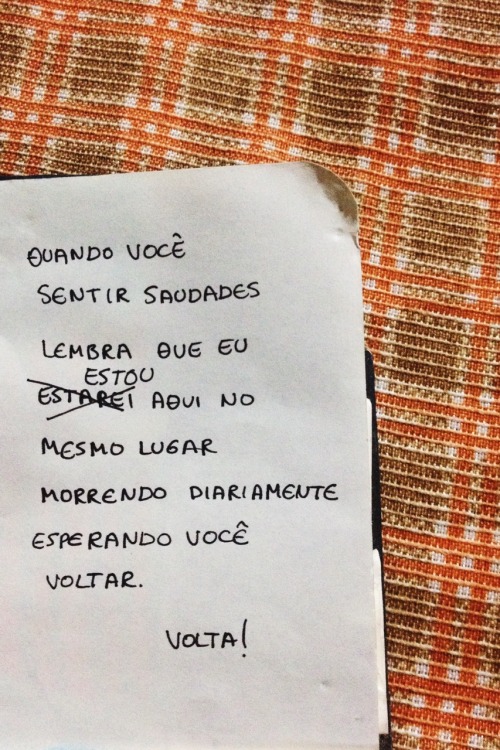 QUANDO VOCÊ
SENTIR SAUDADES
LEMBRA QUE EU
ESTOU
ESTAREI AQUI NO
MESMO LUGAR
MORRENDO DIARIAMENTE
ESPERANDO VOCÊ
VOLTAR.
VOLTA!